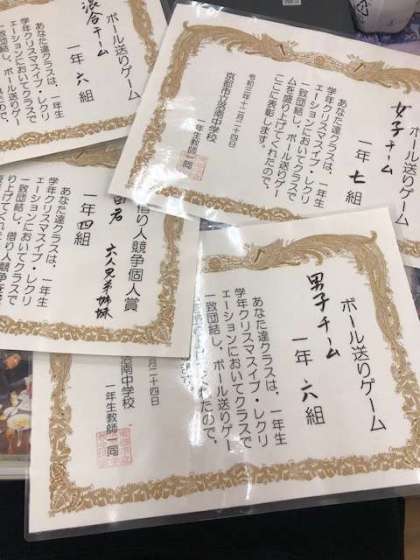 ボール送りゲーム
渋谷チーム
一年六組
あなた達クラスは、一年生
学年クリスマスイブ・レクリ
エーションにおいてクラスで
一致団結し、ボール送りゲー
ボール送りゲーム
女子チーム
一年七組
あなた達クラスは、一年生
学年クリスマスイブ・レクリ
エーションにおいてクラスで
一致団結し、ボール送りゲー
ムを盛り上げてくれたので、
ここに表彰します。
令和三年十二月二十四日
京都市立洛南中学校
一年生教師一同
借り人競争個人賞
田君
六人兄弟姉妹
一年四組
あなた達クラスは、一年生
学年クリスマスイブ・レクリ
エーションにおいてクラスで
一致団結し、借り人競争を
り上げてくれたので
ボール送りゲーム
男子チーム
一年六組
あなた達クラスは、一年生
学年クリスマスイブ・レクリ
ェーションにおいてクラスで
一致団結し、ボール送りゲー
くれたので、
月二十四日
洛南中学校
一年生教師一同